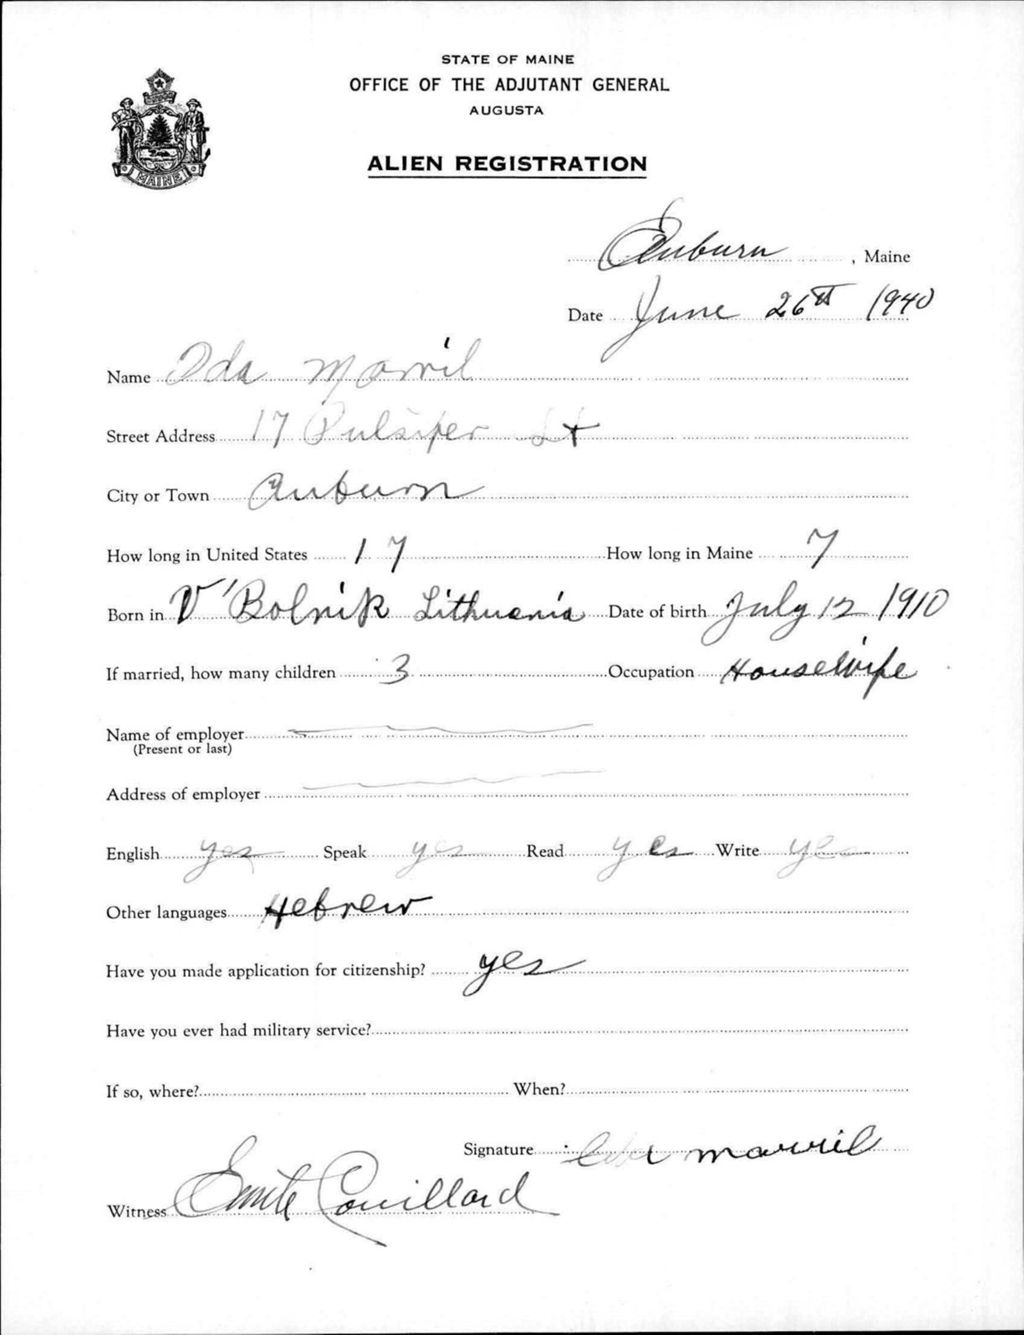 STATE OF MAINE
OFFICE OF THE ADJUTANT GENERAL
AUGUSTA
ALIEN REGISTRATION
MAINE
Auburn, Maine
Date June 26th 1940
Name Ida Morril
Street Address 17 Pulsifer St
City or Town Auburn
How long in United States 17 How long in Maine 7
Born in V'Bolnik Lithuania Date of birth July 12 1910
If married, how many children 3 Occupation Housewife
Name of employer
(Present or last)
Address of employer
English yes Speak yes Read yes Write yes
Other languages Hebrew
Have you made application for citizenship? yes
Have you ever had military service?
If so, where? When?
Signature Ida Morril
Witness Emile Couillard